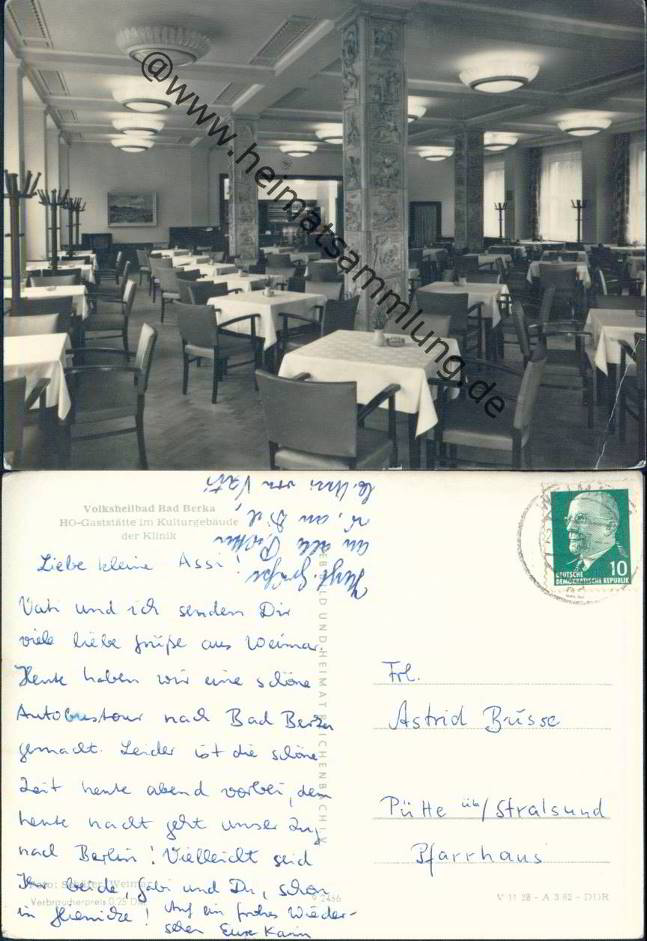 @www.heimatsammlung.de
Volksheilbad Bad Berka
HO-Gaststätte im Kulturgebäude
der Klinik
Liebe kleine Assi!
Vati und ich senden Dir
viele liebe Grüße aus Weimar.
Heute haben wir eine schöne
Autobustour nach Bad Berka
gemacht. Leider ist die schöne
Zeit heute abend vorbei, denn
heute nacht geht unser Zug
nach Berlin! Vielleicht seid
Ihr beide, Gabi und Du, schon
in !
Auf ein frohes Wieder-
sehen Eure Karin
Herzl. Grüße
an alle
u. an Dich,
von Vati
BILD UND HEIMAT REICHENBACH I. V.
10
DEUTSCHE
DEMOKRATISCHE REPUBLIK
Frl.
Astrid Büsse
Pütte üb/Stralsund
Pfarrhaus
Weimar
Verbraucherpreis 0,25 DM
9 2466
V 11 28 - A 3/62 - DDR